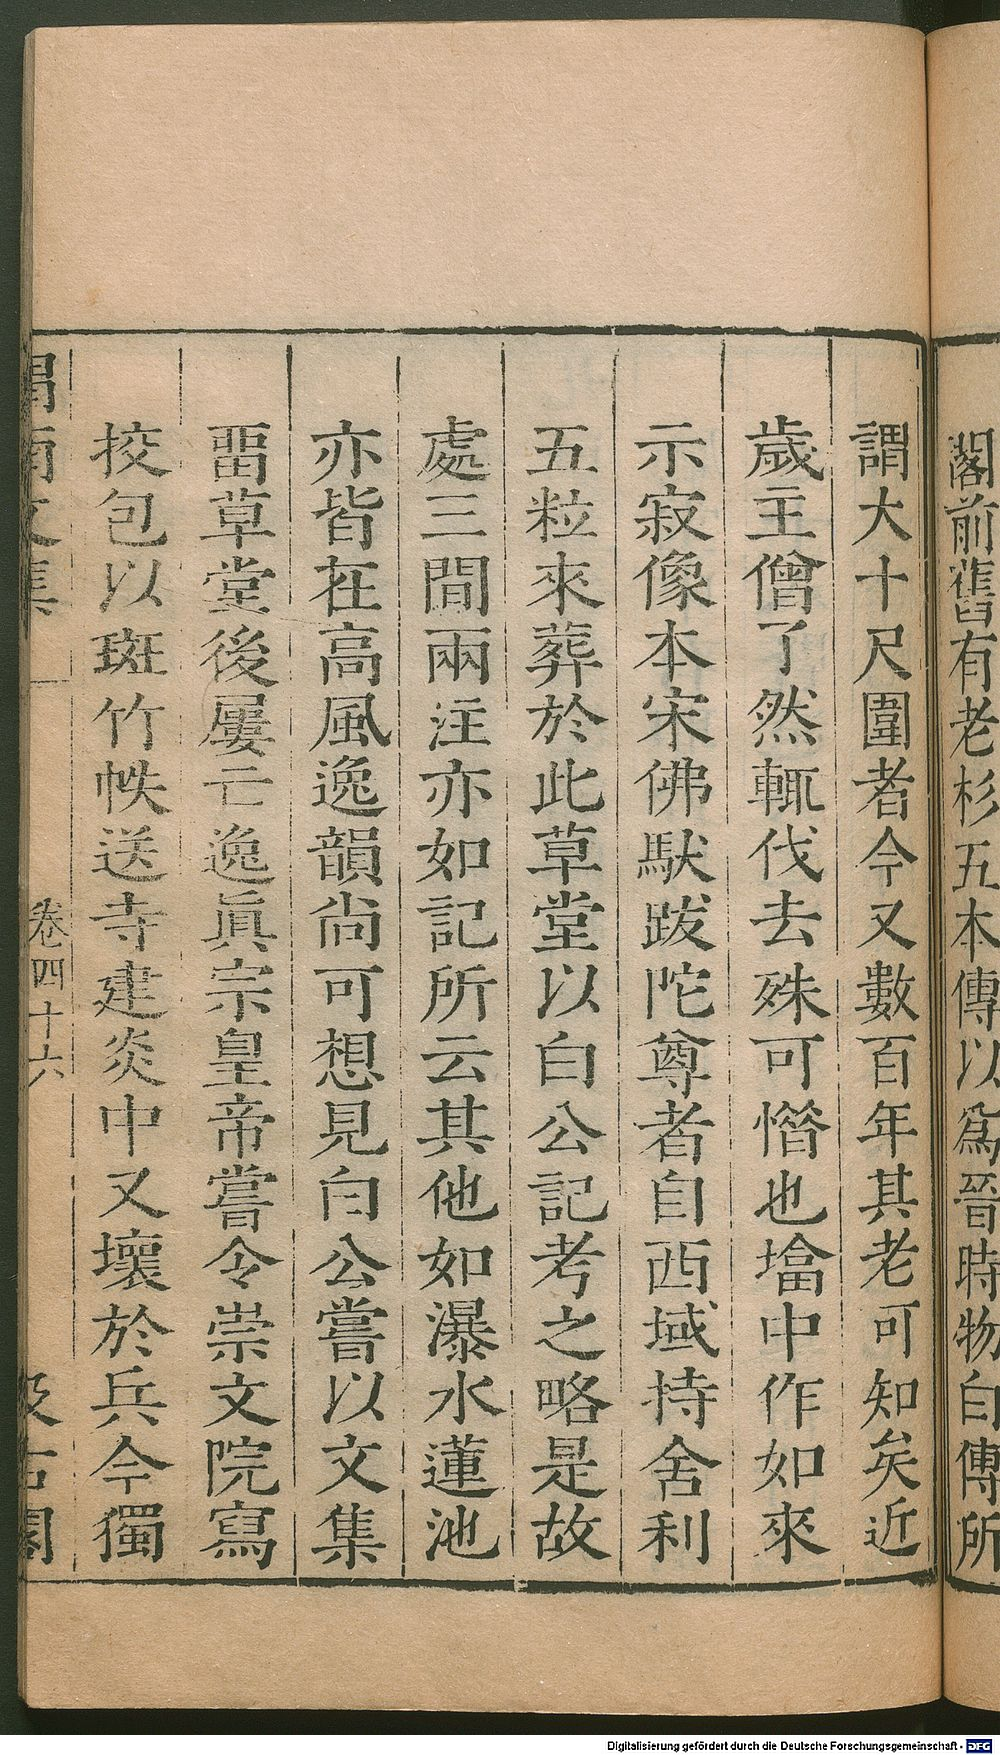 閣前舊有老杉五本傳以爲晉時物白傅所
謂大十尺圍者今又數百年其老可知矣近
歲主僧了然輒伐去殊可惜也塔中作如來
示寂像本宋佛馱跋陀尊者自西域持舍利
五粒來葬於此草堂以白公記考之略是故
處三間兩注亦如記所云其他如瀑水蓮池
亦皆在高風逸韻尚可想見白公嘗以文集
畱草堂後屢亡逸眞宗皇帝嘗令崇文院寫
挍包以斑竹帙送寺建炎中又壞於兵今獨
渭南文集 卷四十六 汲古閣
Digitalisierung gefördert durch die Deutsche Forschungsgemeinschaft - DFG